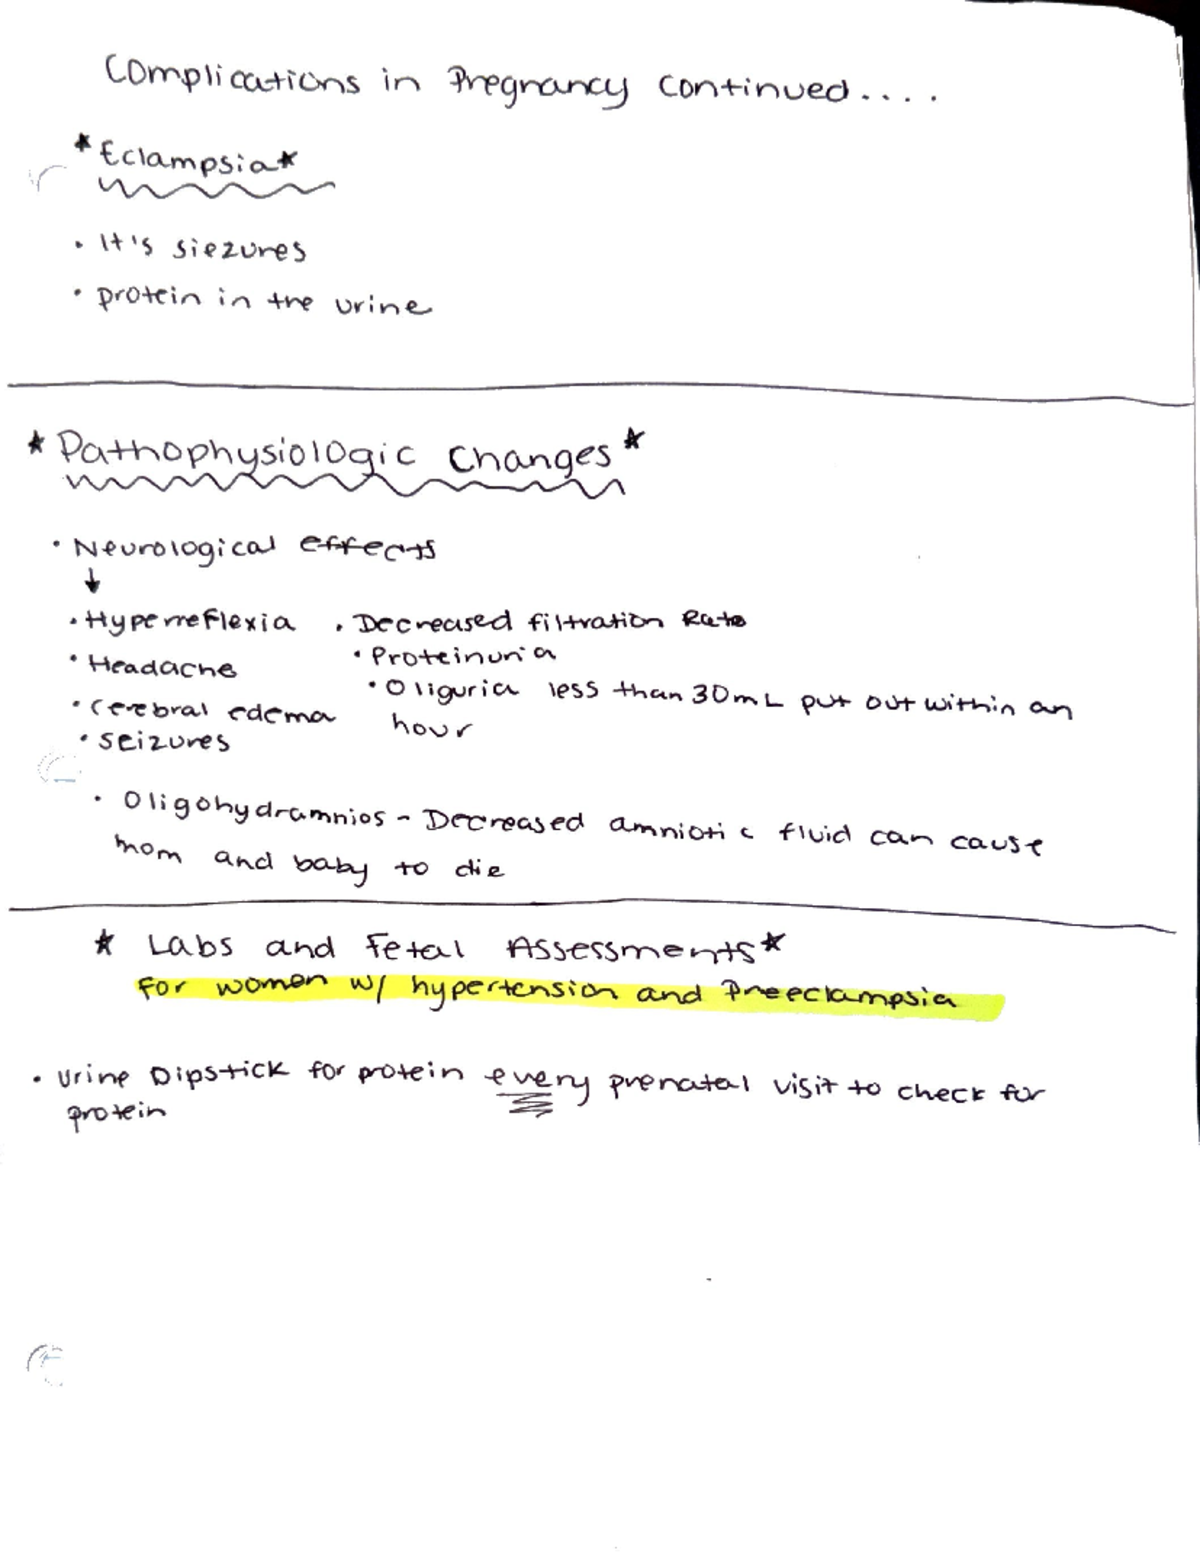 Complications in Pregnancy continued....
*Eclampsia*
• It's siezures
• protein in the urine
*Pathophysiologic changes*
• Neurological effects
↓
• Hyperreflexia • Decreased filtration Rate
• Headache • Proteinuria
• cerebral edema • Oliguria less than 30mL put out within an
hour
• seizures
• Oligohydramnios - Decreased amniotic fluid can cause
mom and baby to die
* Labs and Fetal Assessments*
For women w/ hypertension and Preeclampsia
• Urine Dipstick for protein every prenatal visit to check for
protein